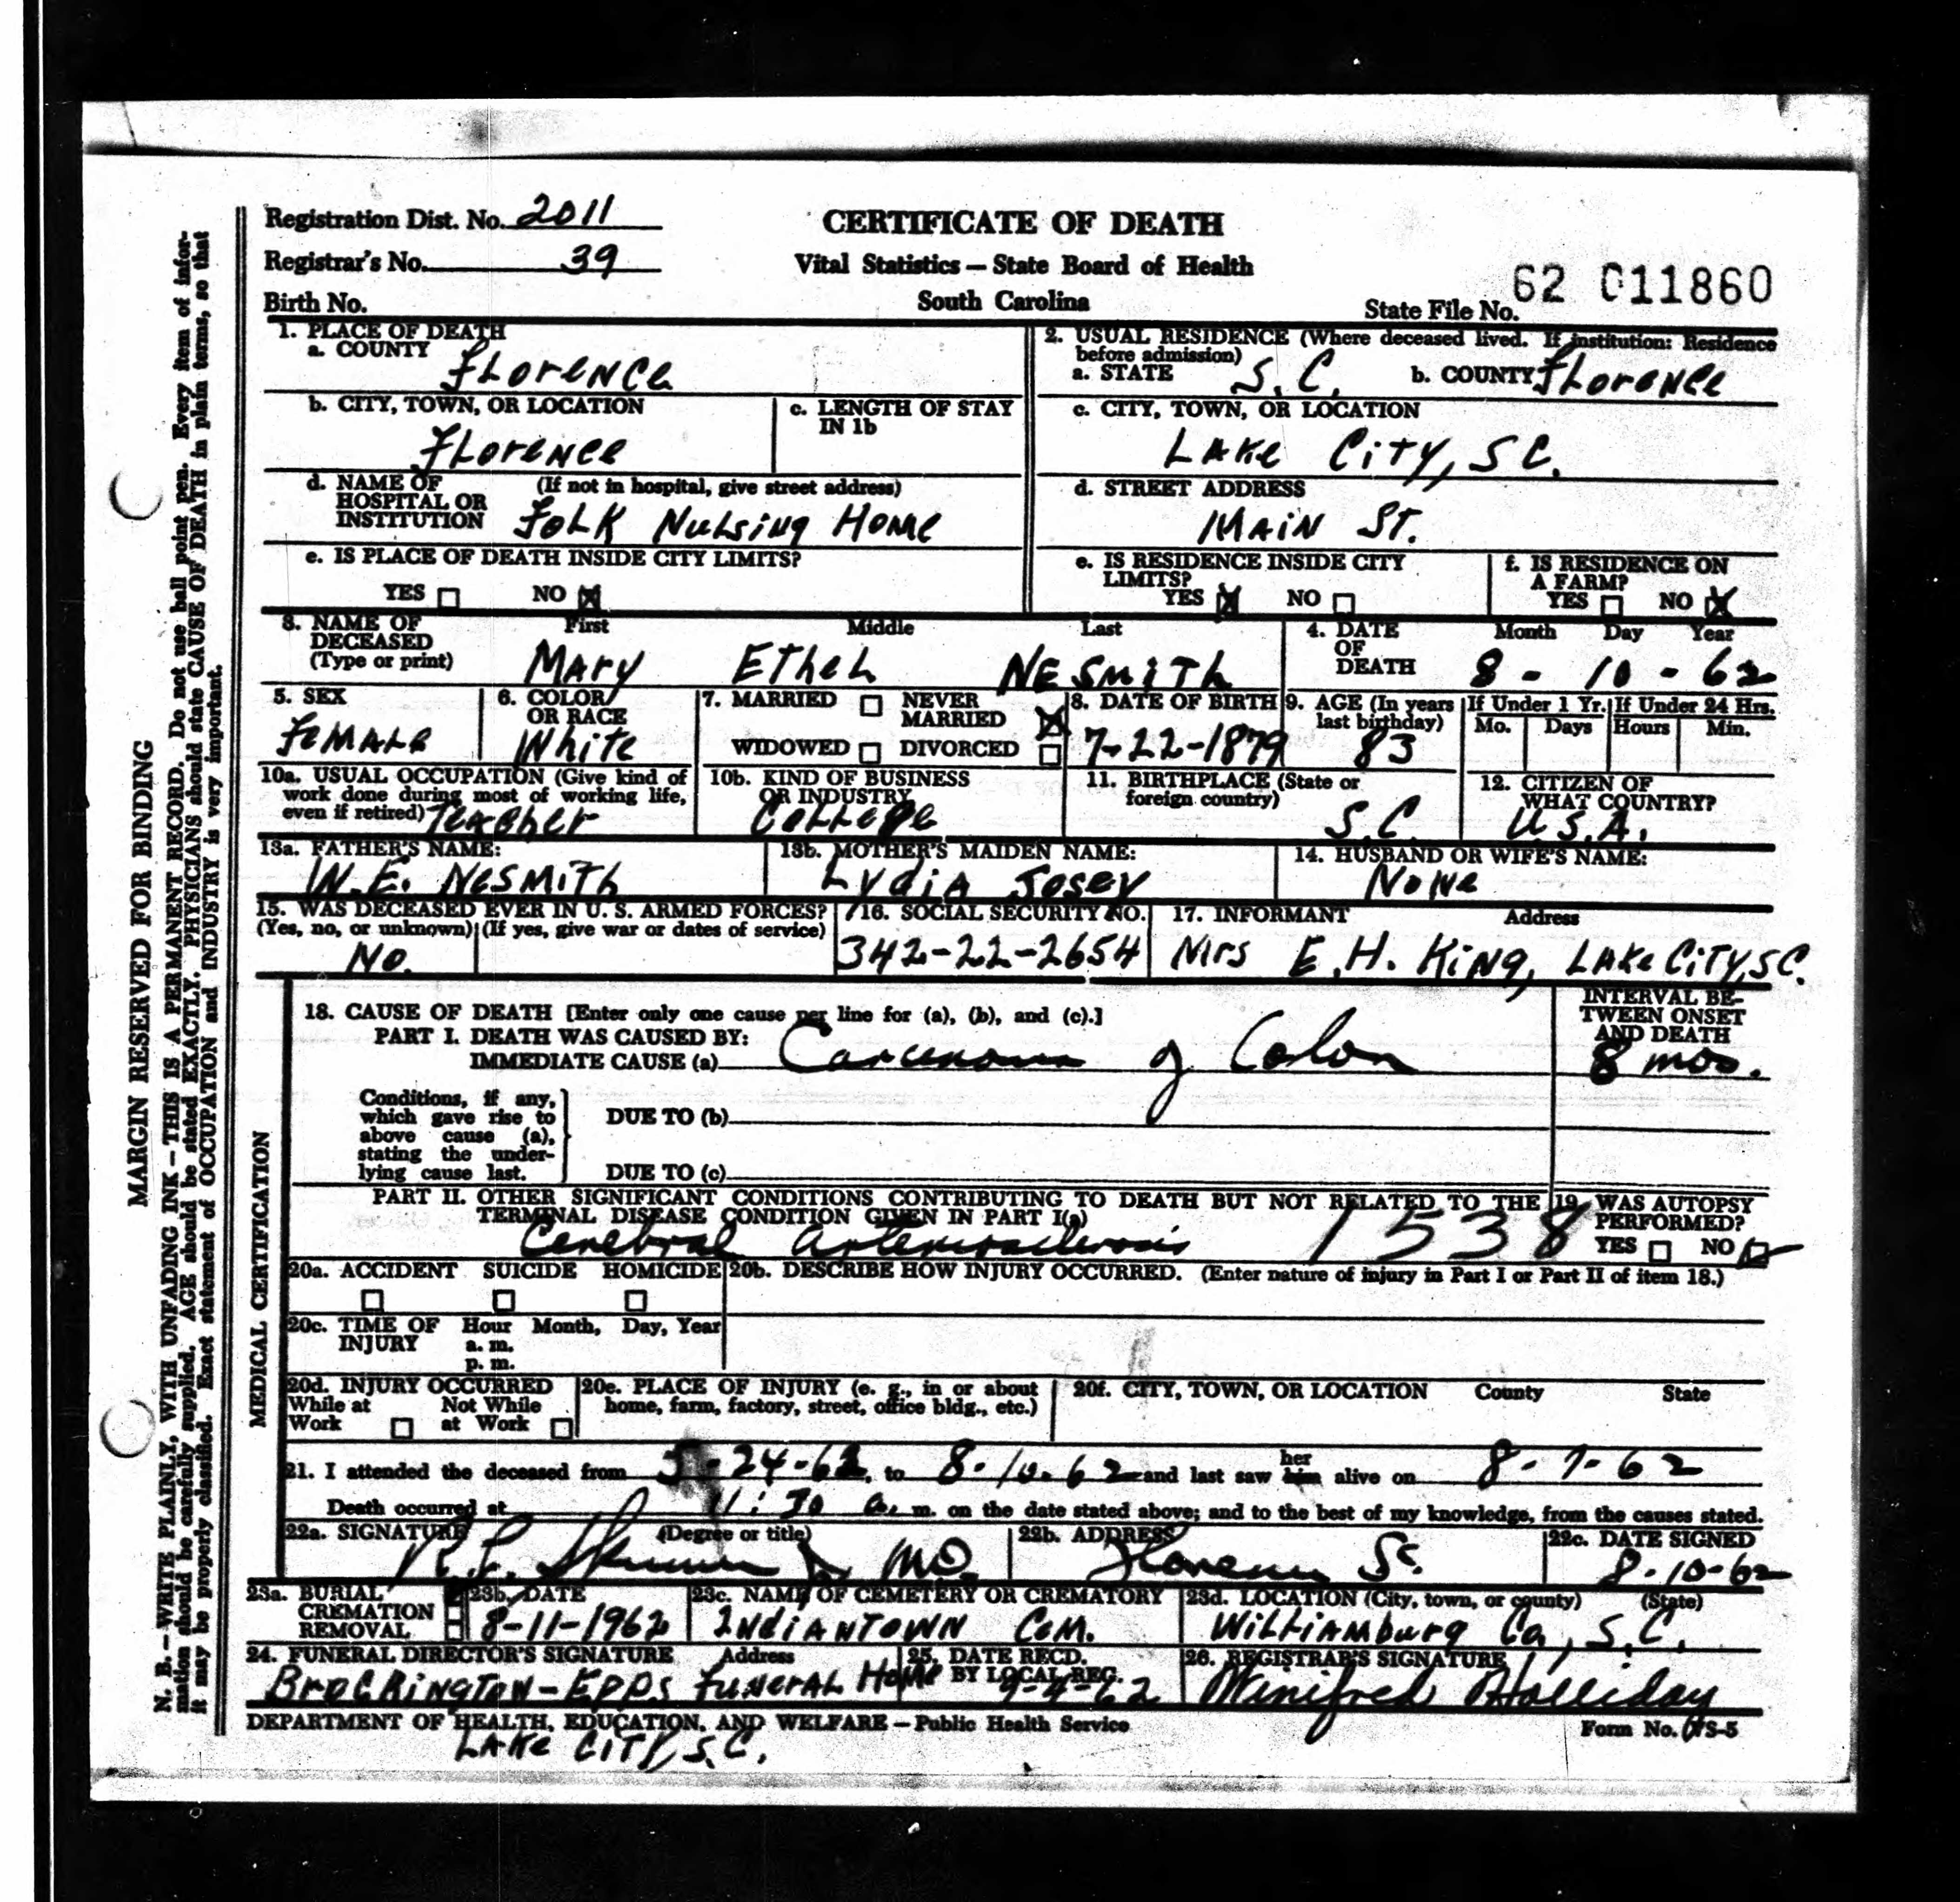 Registration Dist. No. 2011
CERTIFICATE OF DEATH
Registrar's No. 39
Vital Statistics — State Board of Health
Birth No.
South Carolina
State File No. 62 011860
1. PLACE OF DEATH
a. COUNTY Florence
2. USUAL RESIDENCE (Where deceased lived. If institution: Residence
before admission)
a. STATE S.C. b. COUNTY Florence
b. CITY, TOWN, OR LOCATION
Florence
c. LENGTH OF STAY
IN 1b
c. CITY, TOWN, OR LOCATION
LAKE CITY, SC.
d. NAME OF (If not in hospital, give street address)
HOSPITAL OR
INSTITUTION Folk Nursing Home
d. STREET ADDRESS
MAIN ST.
e. IS PLACE OF DEATH INSIDE CITY LIMITS?
YES NO X
e. IS RESIDENCE INSIDE CITY
LIMITS?
YES X NO
f. IS RESIDENCE ON
A FARM?
YES NO X
3. NAME OF First Middle Last
DECEASED
(Type or print) MARY EThel NESMITH
4. DATE Month Day Year
OF
DEATH 8 - 10 - 62
5. SEX
Female
6. COLOR
OR RACE
White
7. MARRIED NEVER
MARRIED X
WIDOWED DIVORCED
8. DATE OF BIRTH
7-22-1879
9. AGE (In years
last birthday)
83
If Under 1 Yr. If Under 24 Hrs.
Mo. Days Hours Min.
10a. USUAL OCCUPATION (Give kind of
work done during most of working life,
even if retired) Teacher
10b. KIND OF BUSINESS
OR INDUSTRY
College
11. BIRTHPLACE (State or
foreign country)
S.C.
12. CITIZEN OF
WHAT COUNTRY?
U.S.A.
13a. FATHER'S NAME:
W.E. NESMITH
13b. MOTHER'S MAIDEN NAME:
Lydia Josey
14. HUSBAND OR WIFE'S NAME:
None
15. WAS DECEASED EVER IN U. S. ARMED FORCES?
(Yes, no, or unknown) (If yes, give war or dates of service)
No.
16. SOCIAL SECURITY NO.
342-22-2654
17. INFORMANT Address
Mrs E.H. King, Lake City, SC.
18. CAUSE OF DEATH [Enter only one cause per line for (a), (b), and (c).]
INTERVAL BE-
TWEEN ONSET
AND DEATH
PART I. DEATH WAS CAUSED BY:
IMMEDIATE CAUSE (a) Carcinoma of Colon
8 mos.
Conditions, if any,
which gave rise to
above cause (a),
stating the under-
lying cause last.
DUE TO (b)
DUE TO (c)
PART II. OTHER SIGNIFICANT CONDITIONS CONTRIBUTING TO DEATH BUT NOT RELATED TO THE
TERMINAL DISEASE CONDITION GIVEN IN PART I(a)
Cerebral arteriosclerosis 1538
19. WAS AUTOPSY
PERFORMED?
YES NO
20a. ACCIDENT SUICIDE HOMICIDE
20b. DESCRIBE HOW INJURY OCCURRED. (Enter nature of injury in Part I or Part II of item 18.)
20c. TIME OF Hour Month, Day, Year
INJURY a. m.
p. m.
20d. INJURY OCCURRED
While at Not While
Work at Work
20e. PLACE OF INJURY (e. g., in or about
home, farm, factory, street, office bldg., etc.)
20f. CITY, TOWN, OR LOCATION County State
21. I attended the deceased from 5-24-62, to 8-10-62 and last saw her him alive on 8-7-62
Death occurred at 11:30 a. m. on the date stated above; and to the best of my knowledge, from the causes stated.
22a. SIGNATURE (Degree or title)
MD.
22b. ADDRESS
Florence SC.
22c. DATE SIGNED
8-10-62
23a. BURIAL
CREMATION
REMOVAL
23b. DATE
8-11-1962
23c. NAME OF CEMETERY OR CREMATORY
INDIANTOWN Cem.
23d. LOCATION (City, town, or county) (State)
Williamburg Co, S.C.
24. FUNERAL DIRECTOR'S SIGNATURE Address
Brockington-Epps Funeral Home
LAKE CITY, S.C.
25. DATE RECD.
BY LOCAL REG.
9-4-62
26. REGISTRAR'S SIGNATURE
Winifred Holliday
DEPARTMENT OF HEALTH, EDUCATION, AND WELFARE — Public Health Service
Form No. VS-5
MEDICAL CERTIFICATION
MARGIN RESERVED FOR BINDING
N. B.—WRITE PLAINLY, WITH UNFADING INK—THIS IS A PERMANENT RECORD. Do not use ball point pen. Every item of infor-
mation should be carefully supplied. AGE should be stated EXACTLY. PHYSICIANS should state CAUSE OF DEATH in plain terms, so that
it may be properly classified. Exact statement of OCCUPATION and INDUSTRY is very important.